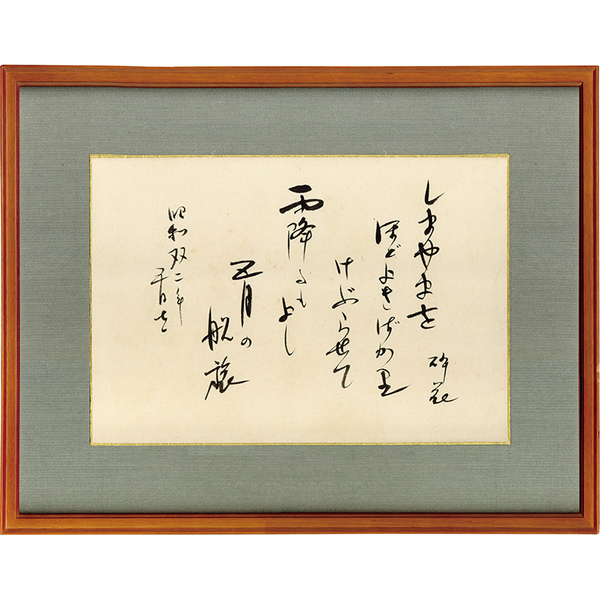 しまやまを
ほどよきばかり
けぶらせて
雨降るもよし
五月の
船旅
昭和双二年